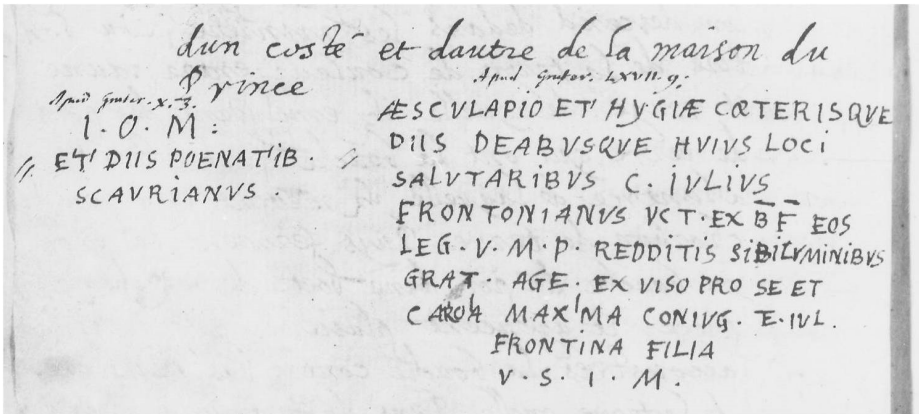 dun costé et dautre de la maison du
Prince
Apud Gruter. X. 3.
I · O · M :
ET DIIS POENATIB ·
SCAVRIANVS .
Apud Gruter. LXVII. 9.
ÆSCVLAPIO ET HYGIÆ CŒTERISQVE
DIIS DEABVSQVE HVIVS LOCI
SALVTARIBVS C. IVLIVS
FRONTONIANVS VCT · EX B̅ F̅ EOS
LEG · V · M · P · REDDITIS SIBI LVMINIBVS
GRAT · AGE · EX VISO PRO SE ET
MAXIMA CONIVG · E · IVL .
FRONTINA FILIA
V · S · I · M .